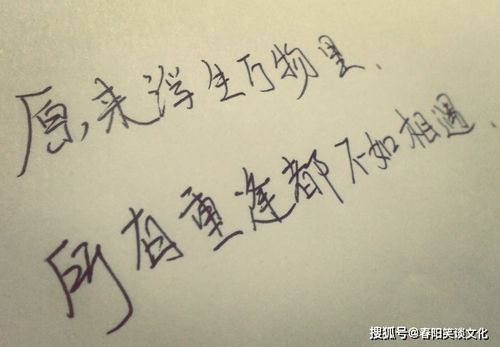 原来浮生万物里、
所有重逢都不如相遇.
搜狐号@春阳笑谈文化